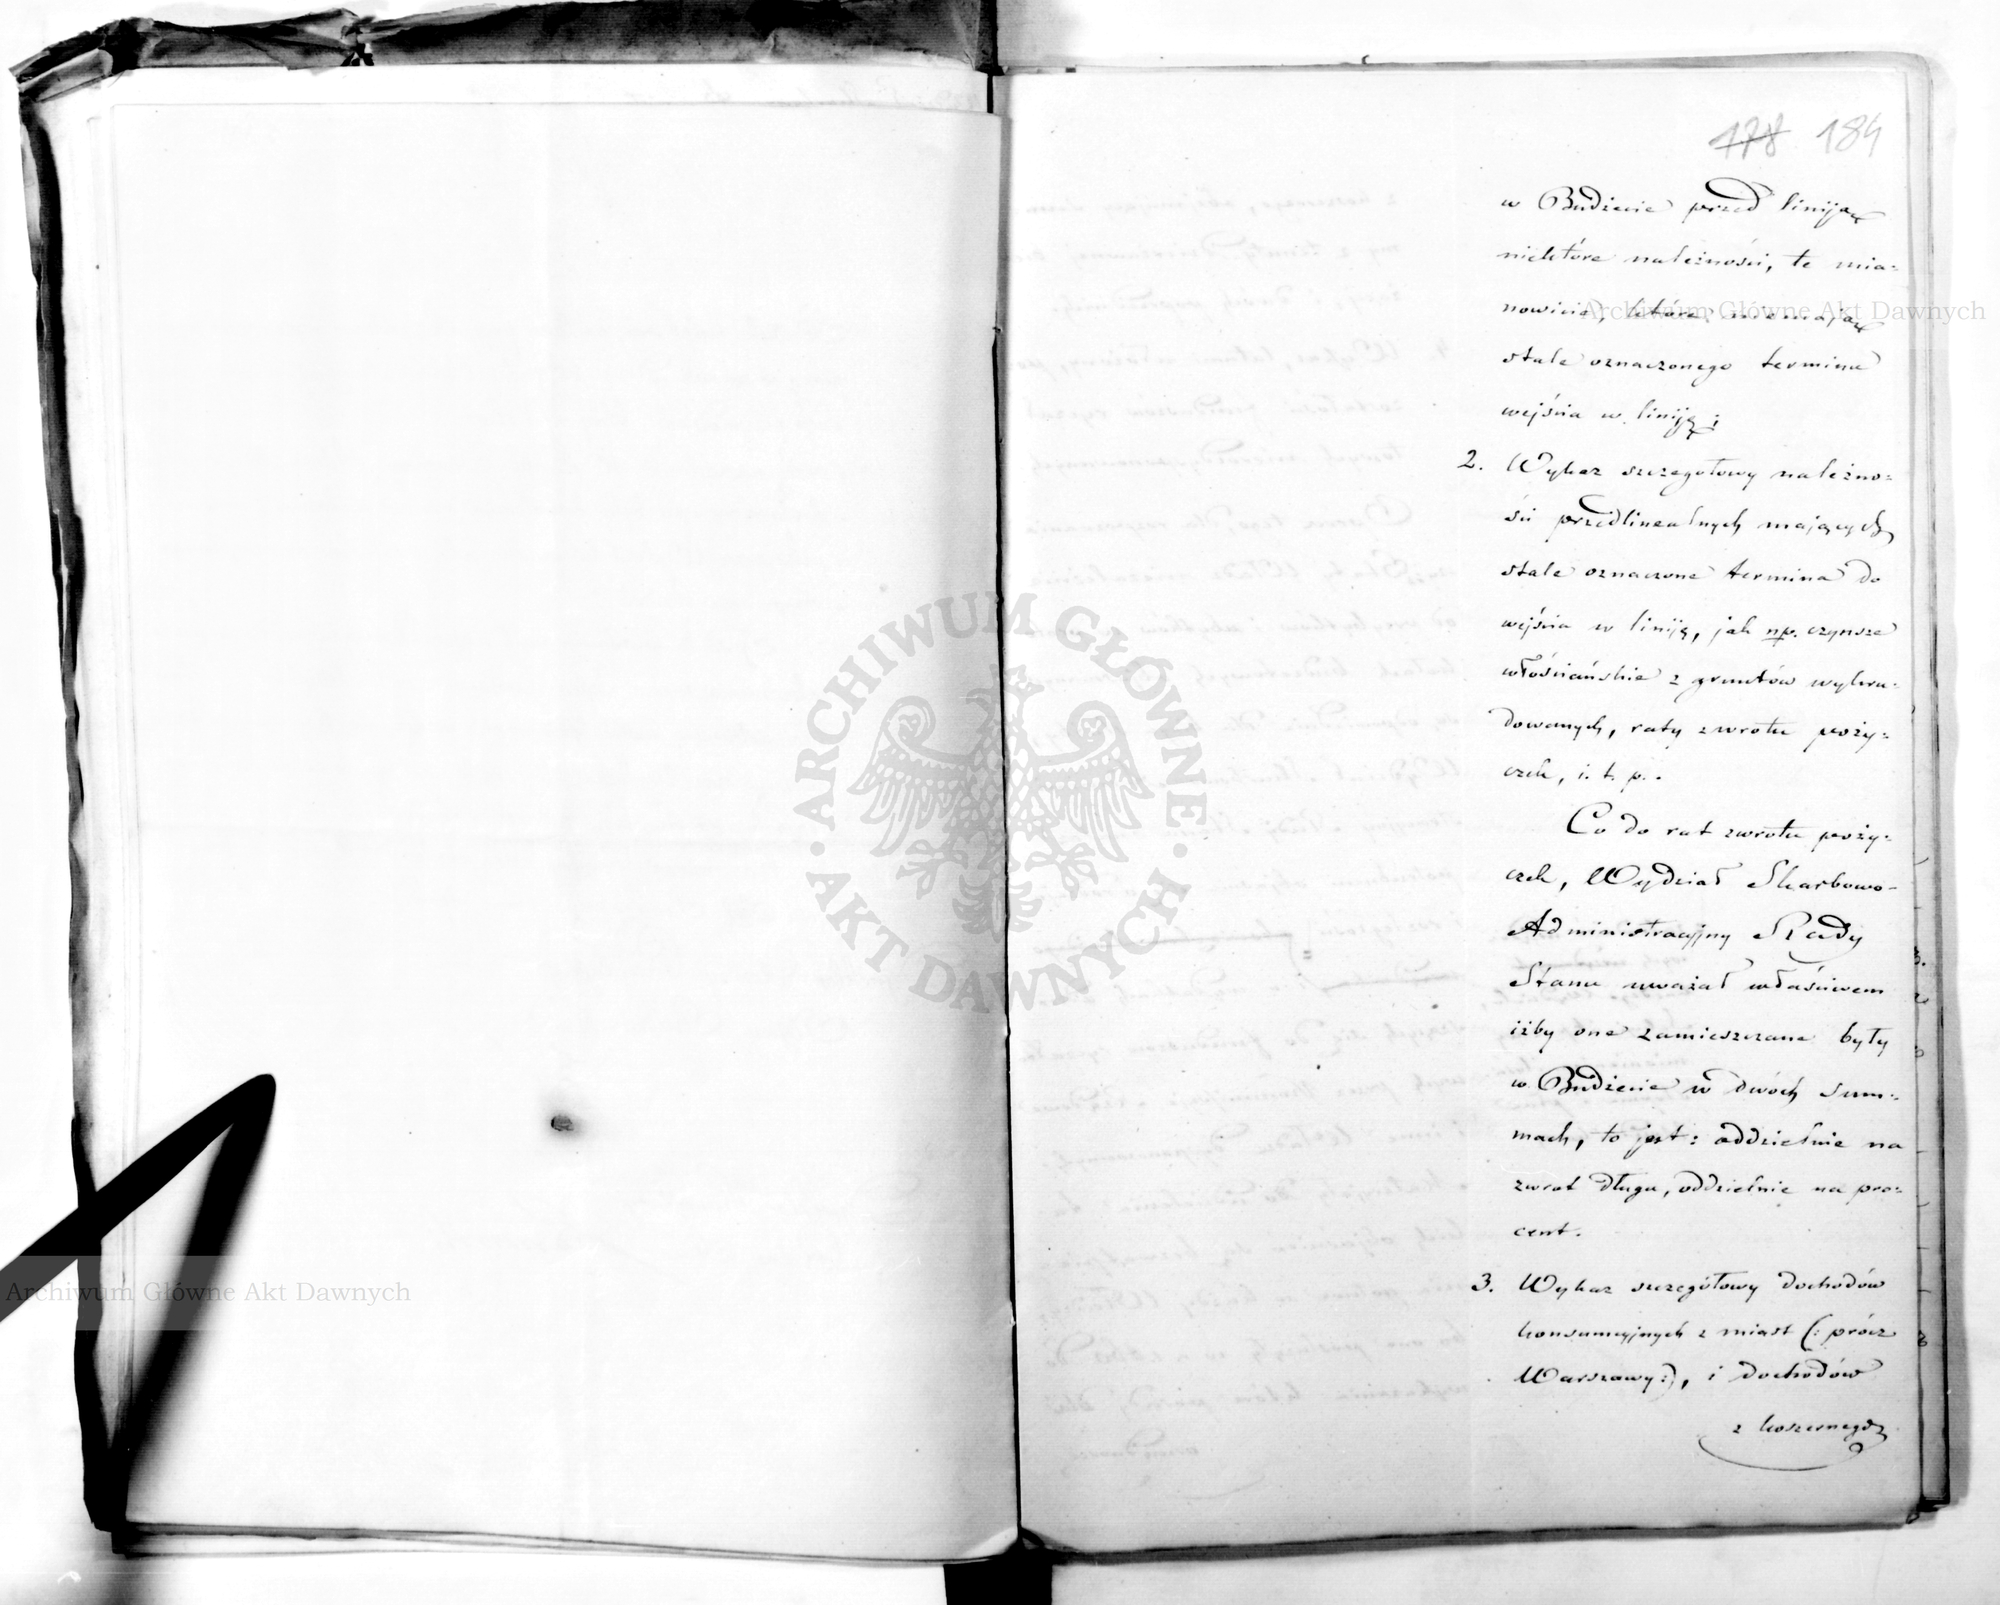 178 184
w Budżecie przed liniją
niektóre należności, te mia=
nowicie, które niemają
stale oznaczonego terminu
wejścia w liniję;
2. Wykaz szczegółowy należno=
ści przedlinealnych mających
stale oznaczone termina do
wejścia w liniję, jak np. czynsze
włościańskie z gruntów wykru=
dowanych, raty zwrotu poży=
czek, i. t. p.
Co do rat zwrotu poży=
czek, Wydział Skarbowo-
Administracyjny Rady
Stanu uważał właściwem
iżby one zamieszczane były
w Budżecie w dwóch sum=
mach, to jest: oddzielnie na
zwrot długu, oddzielnie na pro=
cent.
3. Wykaz szczegółowy dochodów
konsumcyjnych z miast (: prócz
Warszawy:), i dochodów
z koszernego
Archiwum Główne Akt Dawnych
ARCHIWUM GŁÓWNE AKT DAWNYCH
Archiwum Główne Akt Dawnych